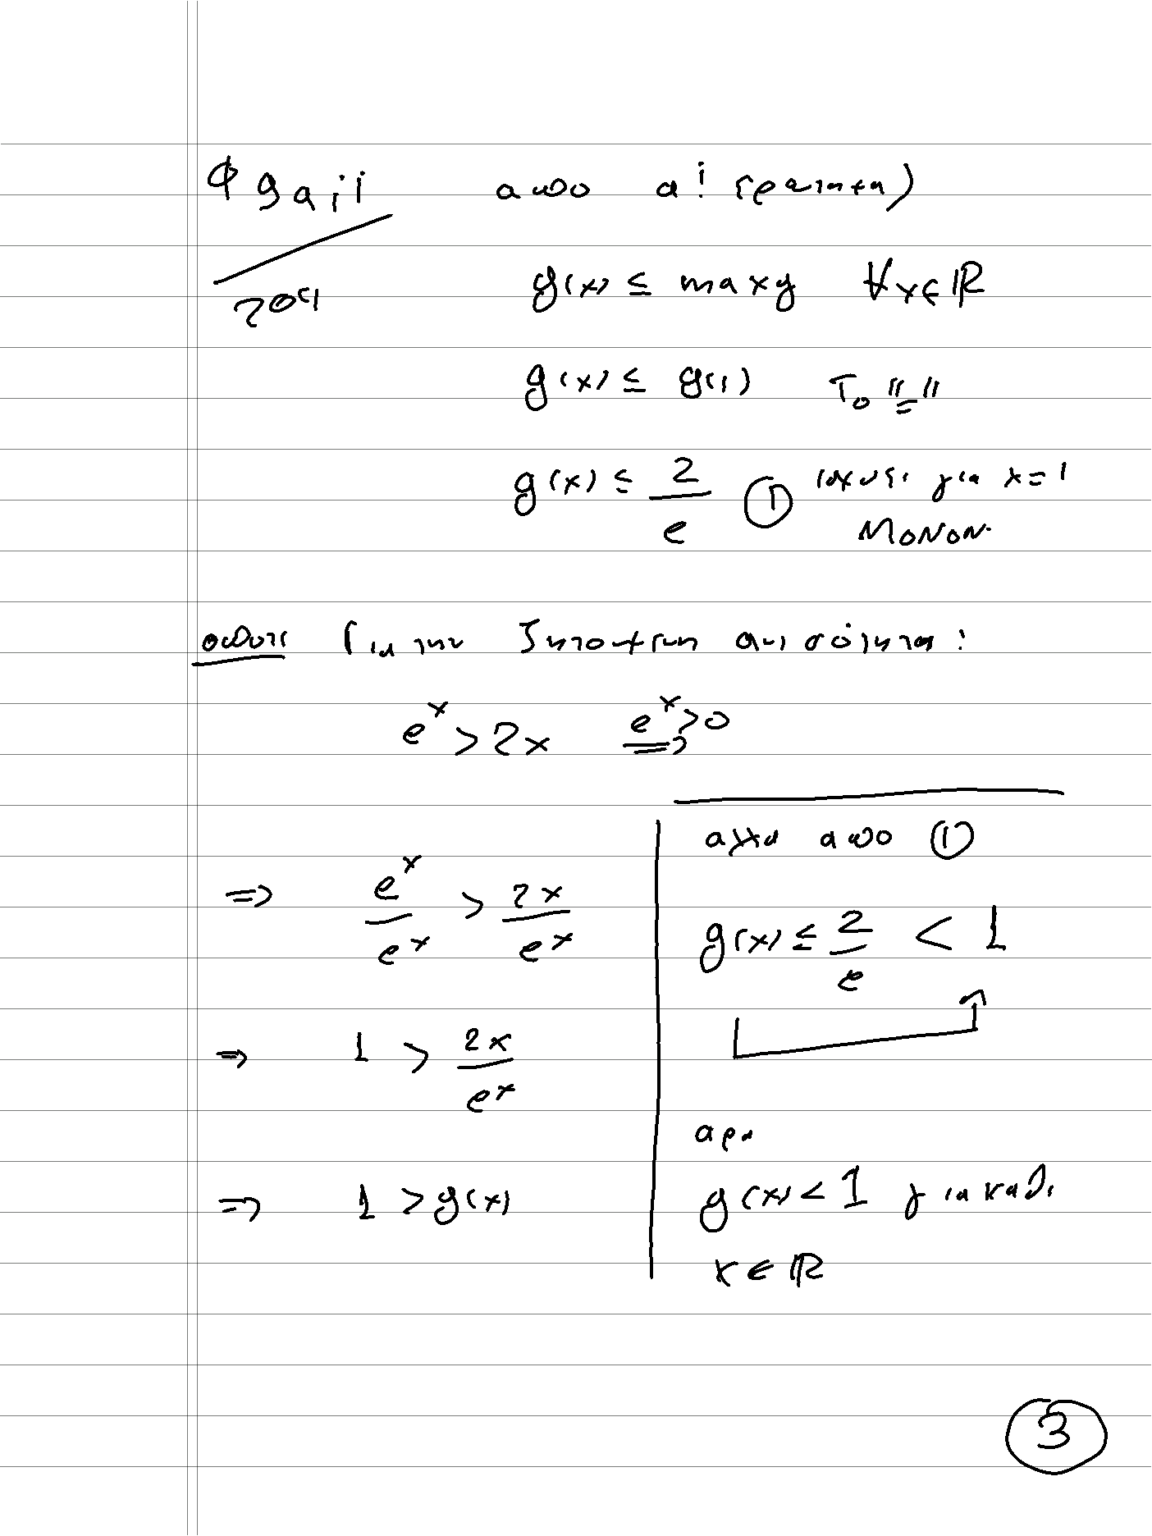 Φ9αii απο α! ερωτημα)
2ος
g(x) ≤ maxg ∀x∈ℝ
g(x) ≤ g(1) Το "="
g(x) ≤ 2/e ① ισχυει για x=1
ΜΟΝΟΝ.
οποτε Για την ζητουμενη ανισότητα:
e^x > 2x e^x>0 ⇒
⇒ e^x/e^x > 2x/e^x
⇒ 1 > 2x/e^x
⇒ 1 > g(x)
αλλα απο ①
g(x) ≤ 2/e < 1
αρα
g(x) < 1 για καθε
x ∈ ℝ
3